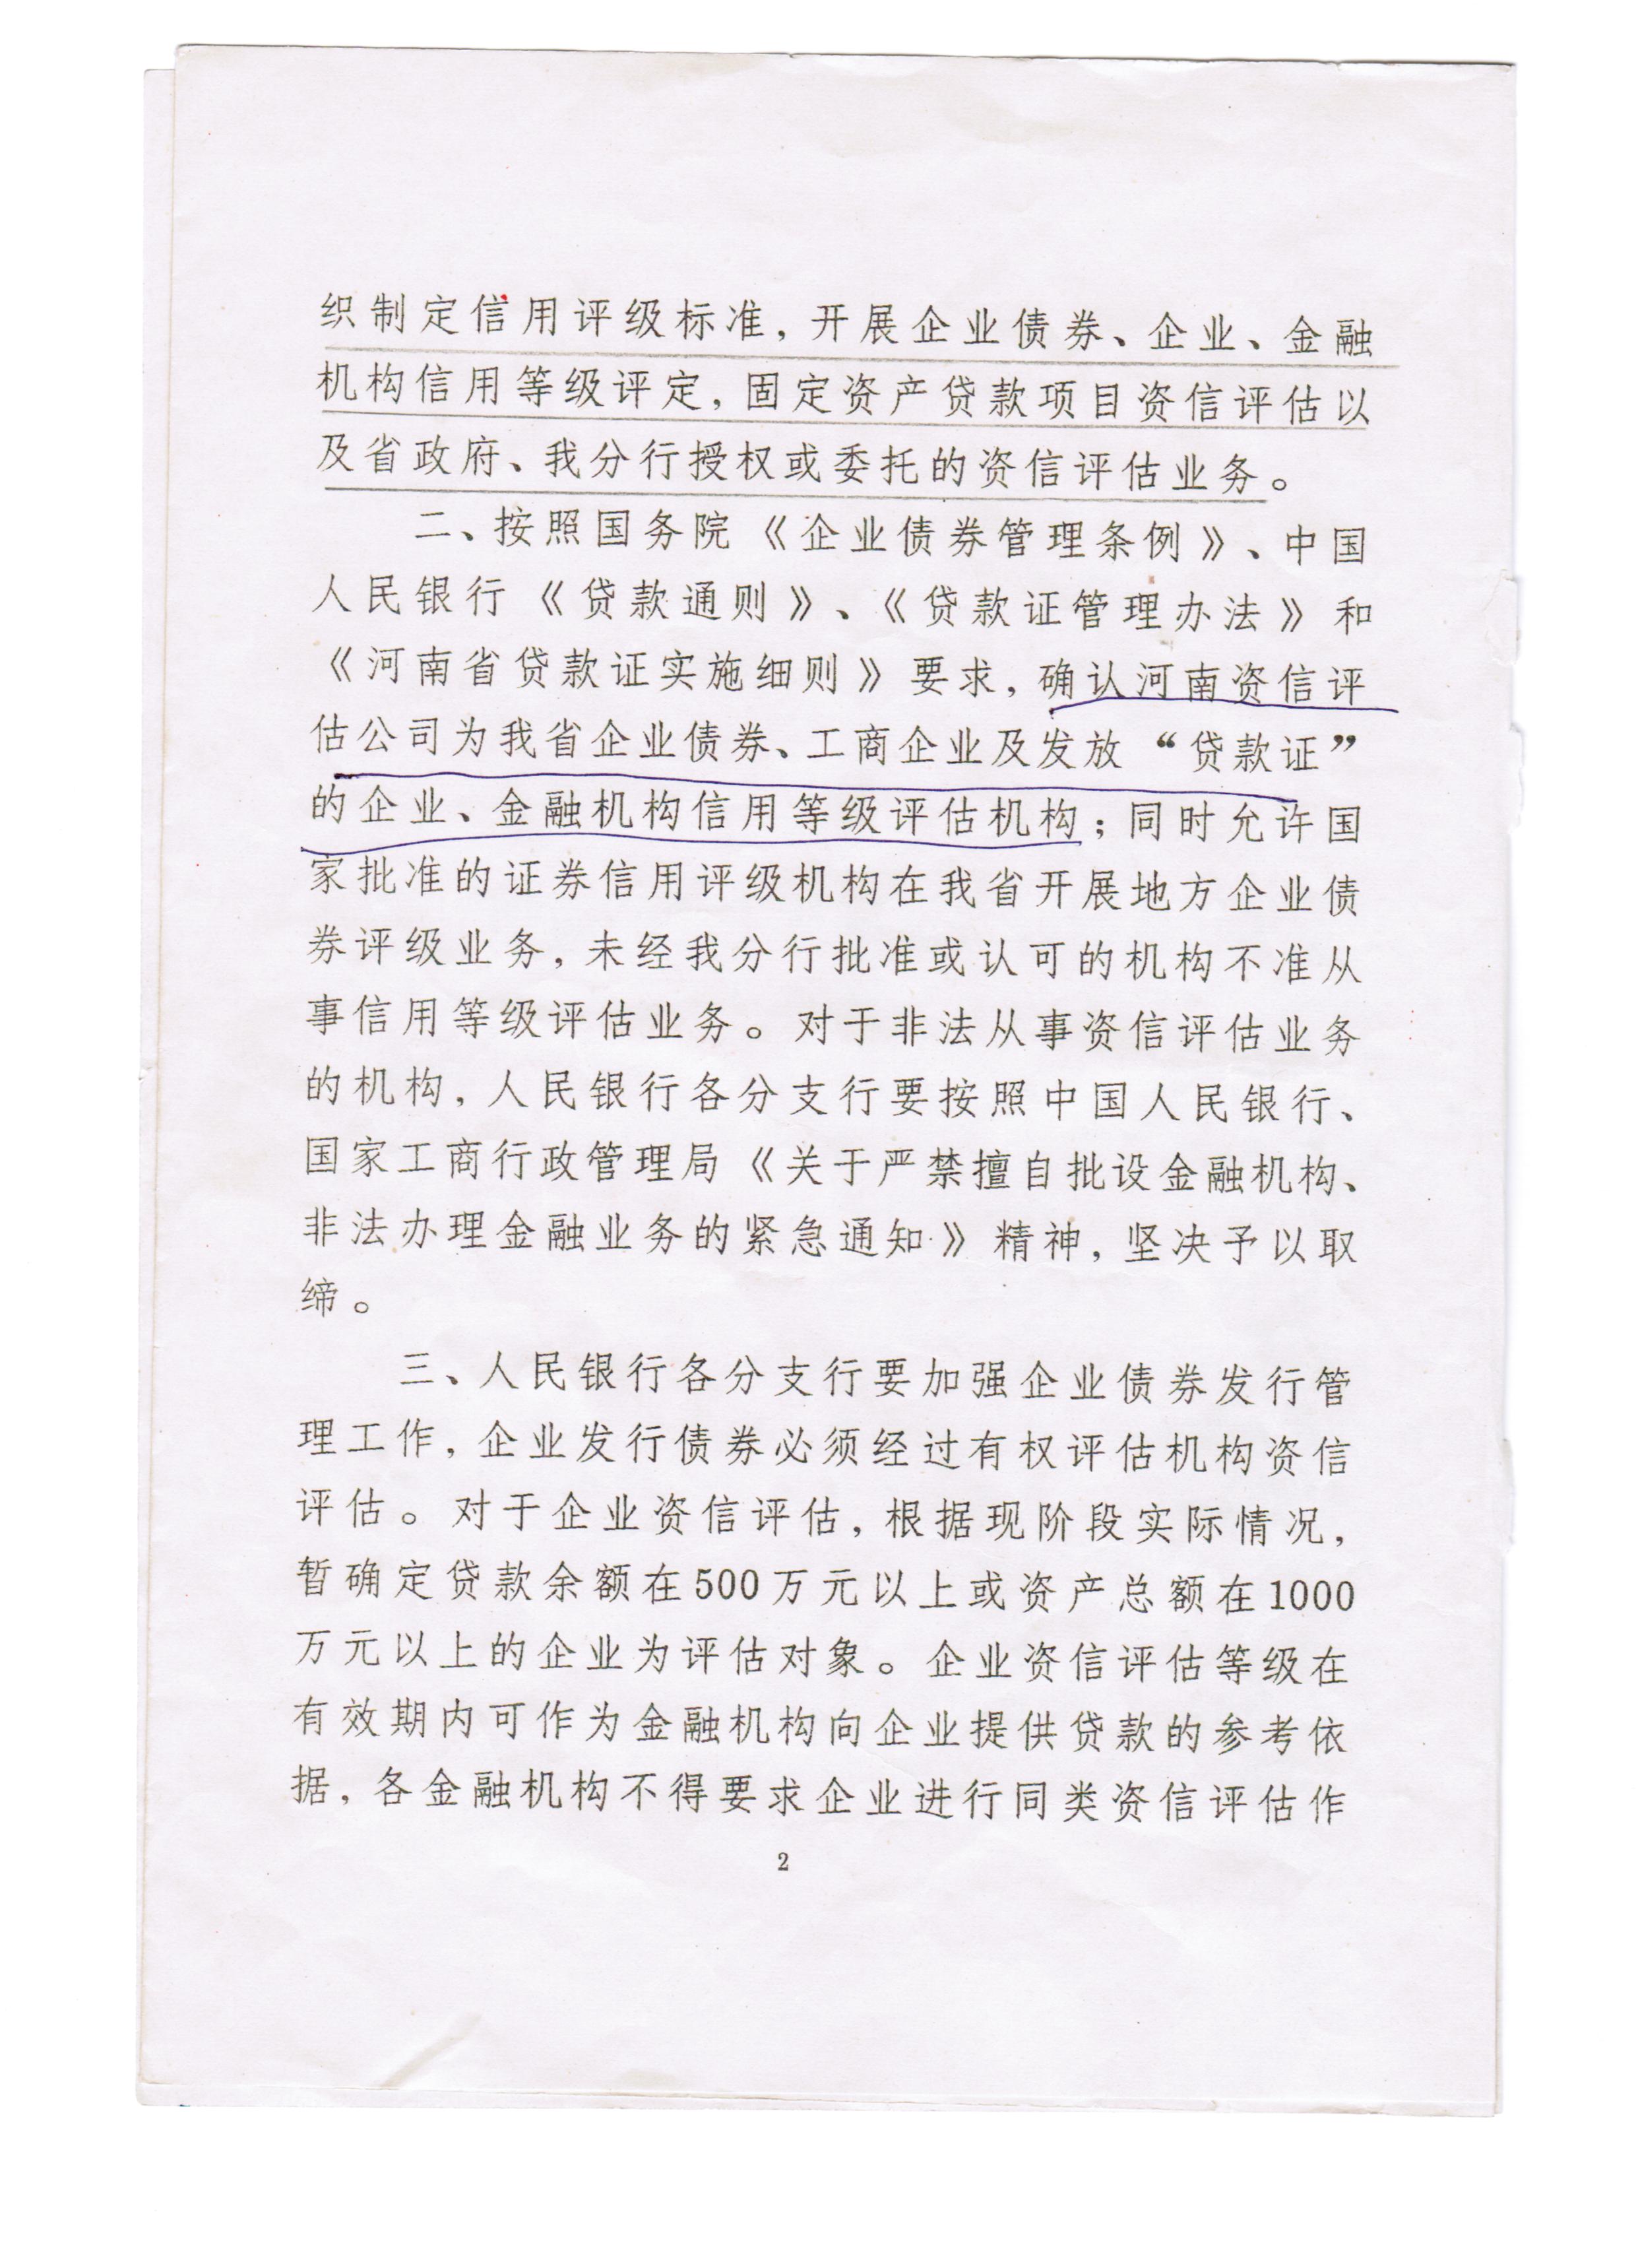 织制定信用评级标准，开展企业债券、企业、金融
机构信用等级评定，固定资产贷款项目资信评估以
及省政府、我分行授权或委托的资信评估业务。
二、按照国务院《企业债券管理条例》、中国
人民银行《贷款通则》、《贷款证管理办法》和
《河南省贷款证实施细则》要求，确认河南资信评
估公司为我省企业债券、工商企业及发放“贷款证”
的企业、金融机构信用等级评估机构；同时允许国
家批准的证券信用评级机构在我省开展地方企业债
券评级业务，未经我分行批准或认可的机构不准从
事信用等级评估业务。对于非法从事资信评估业务
的机构，人民银行各分支行要按照中国人民银行、
国家工商行政管理局《关于严禁擅自批设金融机构、
非法办理金融业务的紧急通知》精神，坚决予以取
缔。
三、人民银行各分支行要加强企业债券发行管
理工作，企业发行债券必须经过有权评估机构资信
评估。对于企业资信评估，根据现阶段实际情况，
暂确定贷款余额在500万元以上或资产总额在1000
万元以上的企业为评估对象。企业资信评估等级在
有效期内可作为金融机构向企业提供贷款的参考依
据，各金融机构不得要求企业进行同类资信评估作
2